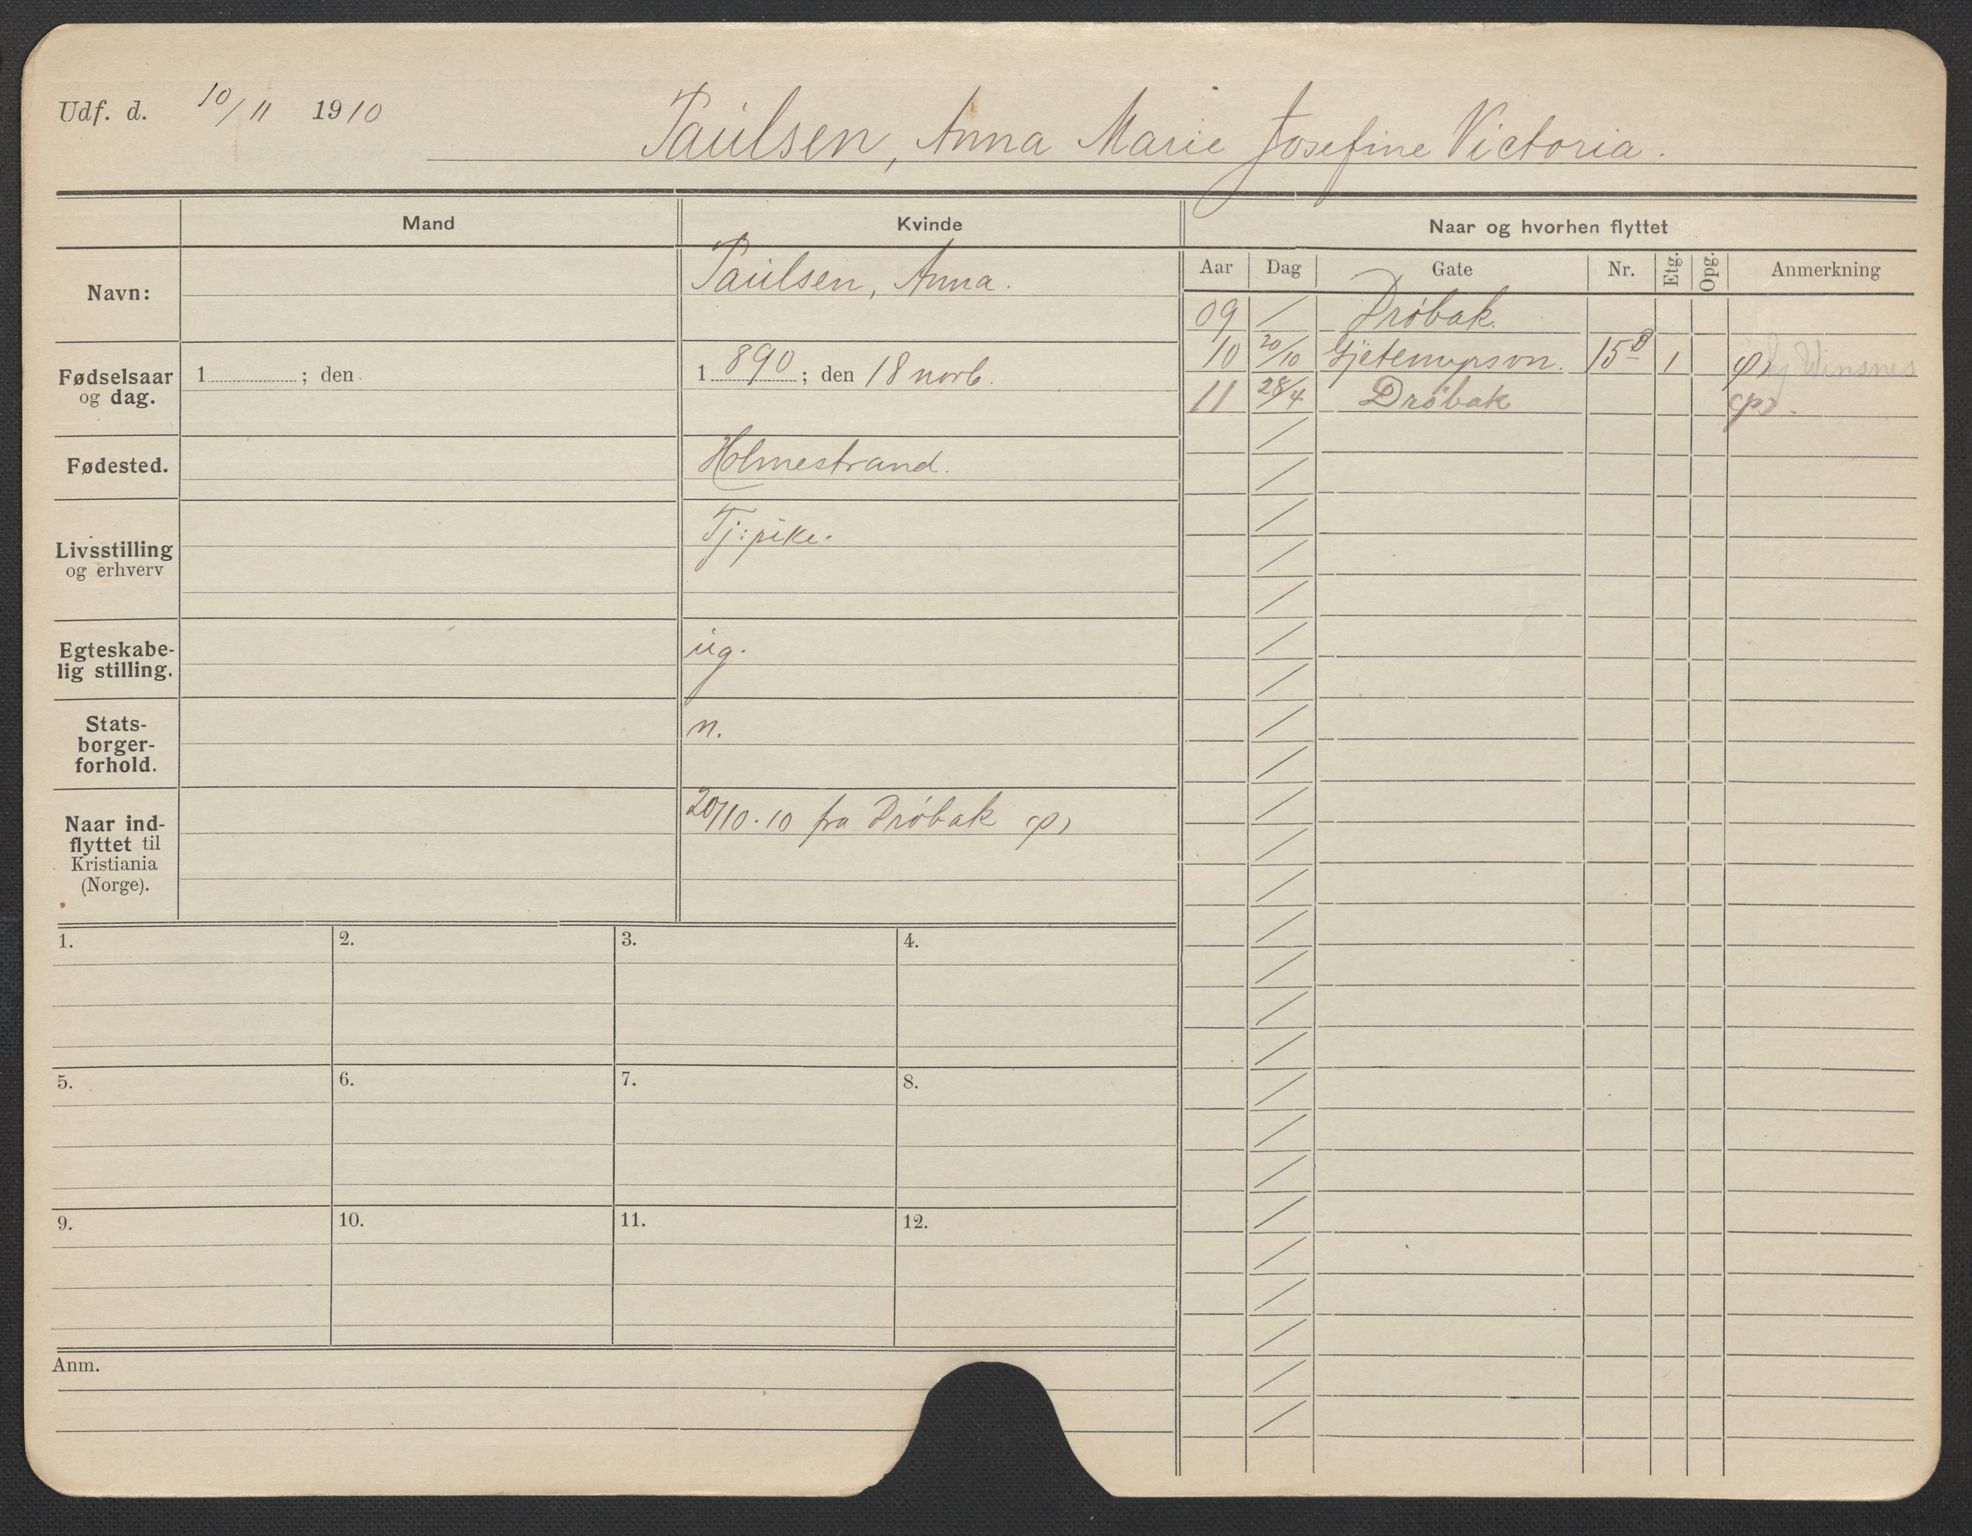 Udf. d. 10/11 1910
Paulsen, Anna Marie Josefine Victoria.
Mand Kvinde Naar og hvorhen flyttet
Aar Dag Gate Nr. Etg. Opg. Anmerkning
Navn: Paulsen, Anna.
Fødselsaar og dag. 1 ; den 1 890 ; den 18 novb.
Fødested. Holmestrand.
Livsstilling og erhverv Tj: pike.
Egteskabe-
lig stilling. ug.
Stats-
borger-
forhold. n.
Naar ind-
flyttet til
Kristiania
(Norge). 20/10. 10 fra Drøbak
09 / Drøbak.
10 20/10 Gjetemyrsvn. 15B 1 hj Winsnes
11 28/4 Drøbak
1. 2. 3. 4.
5. 6. 7. 8.
9. 10. 11. 12.
Anm.